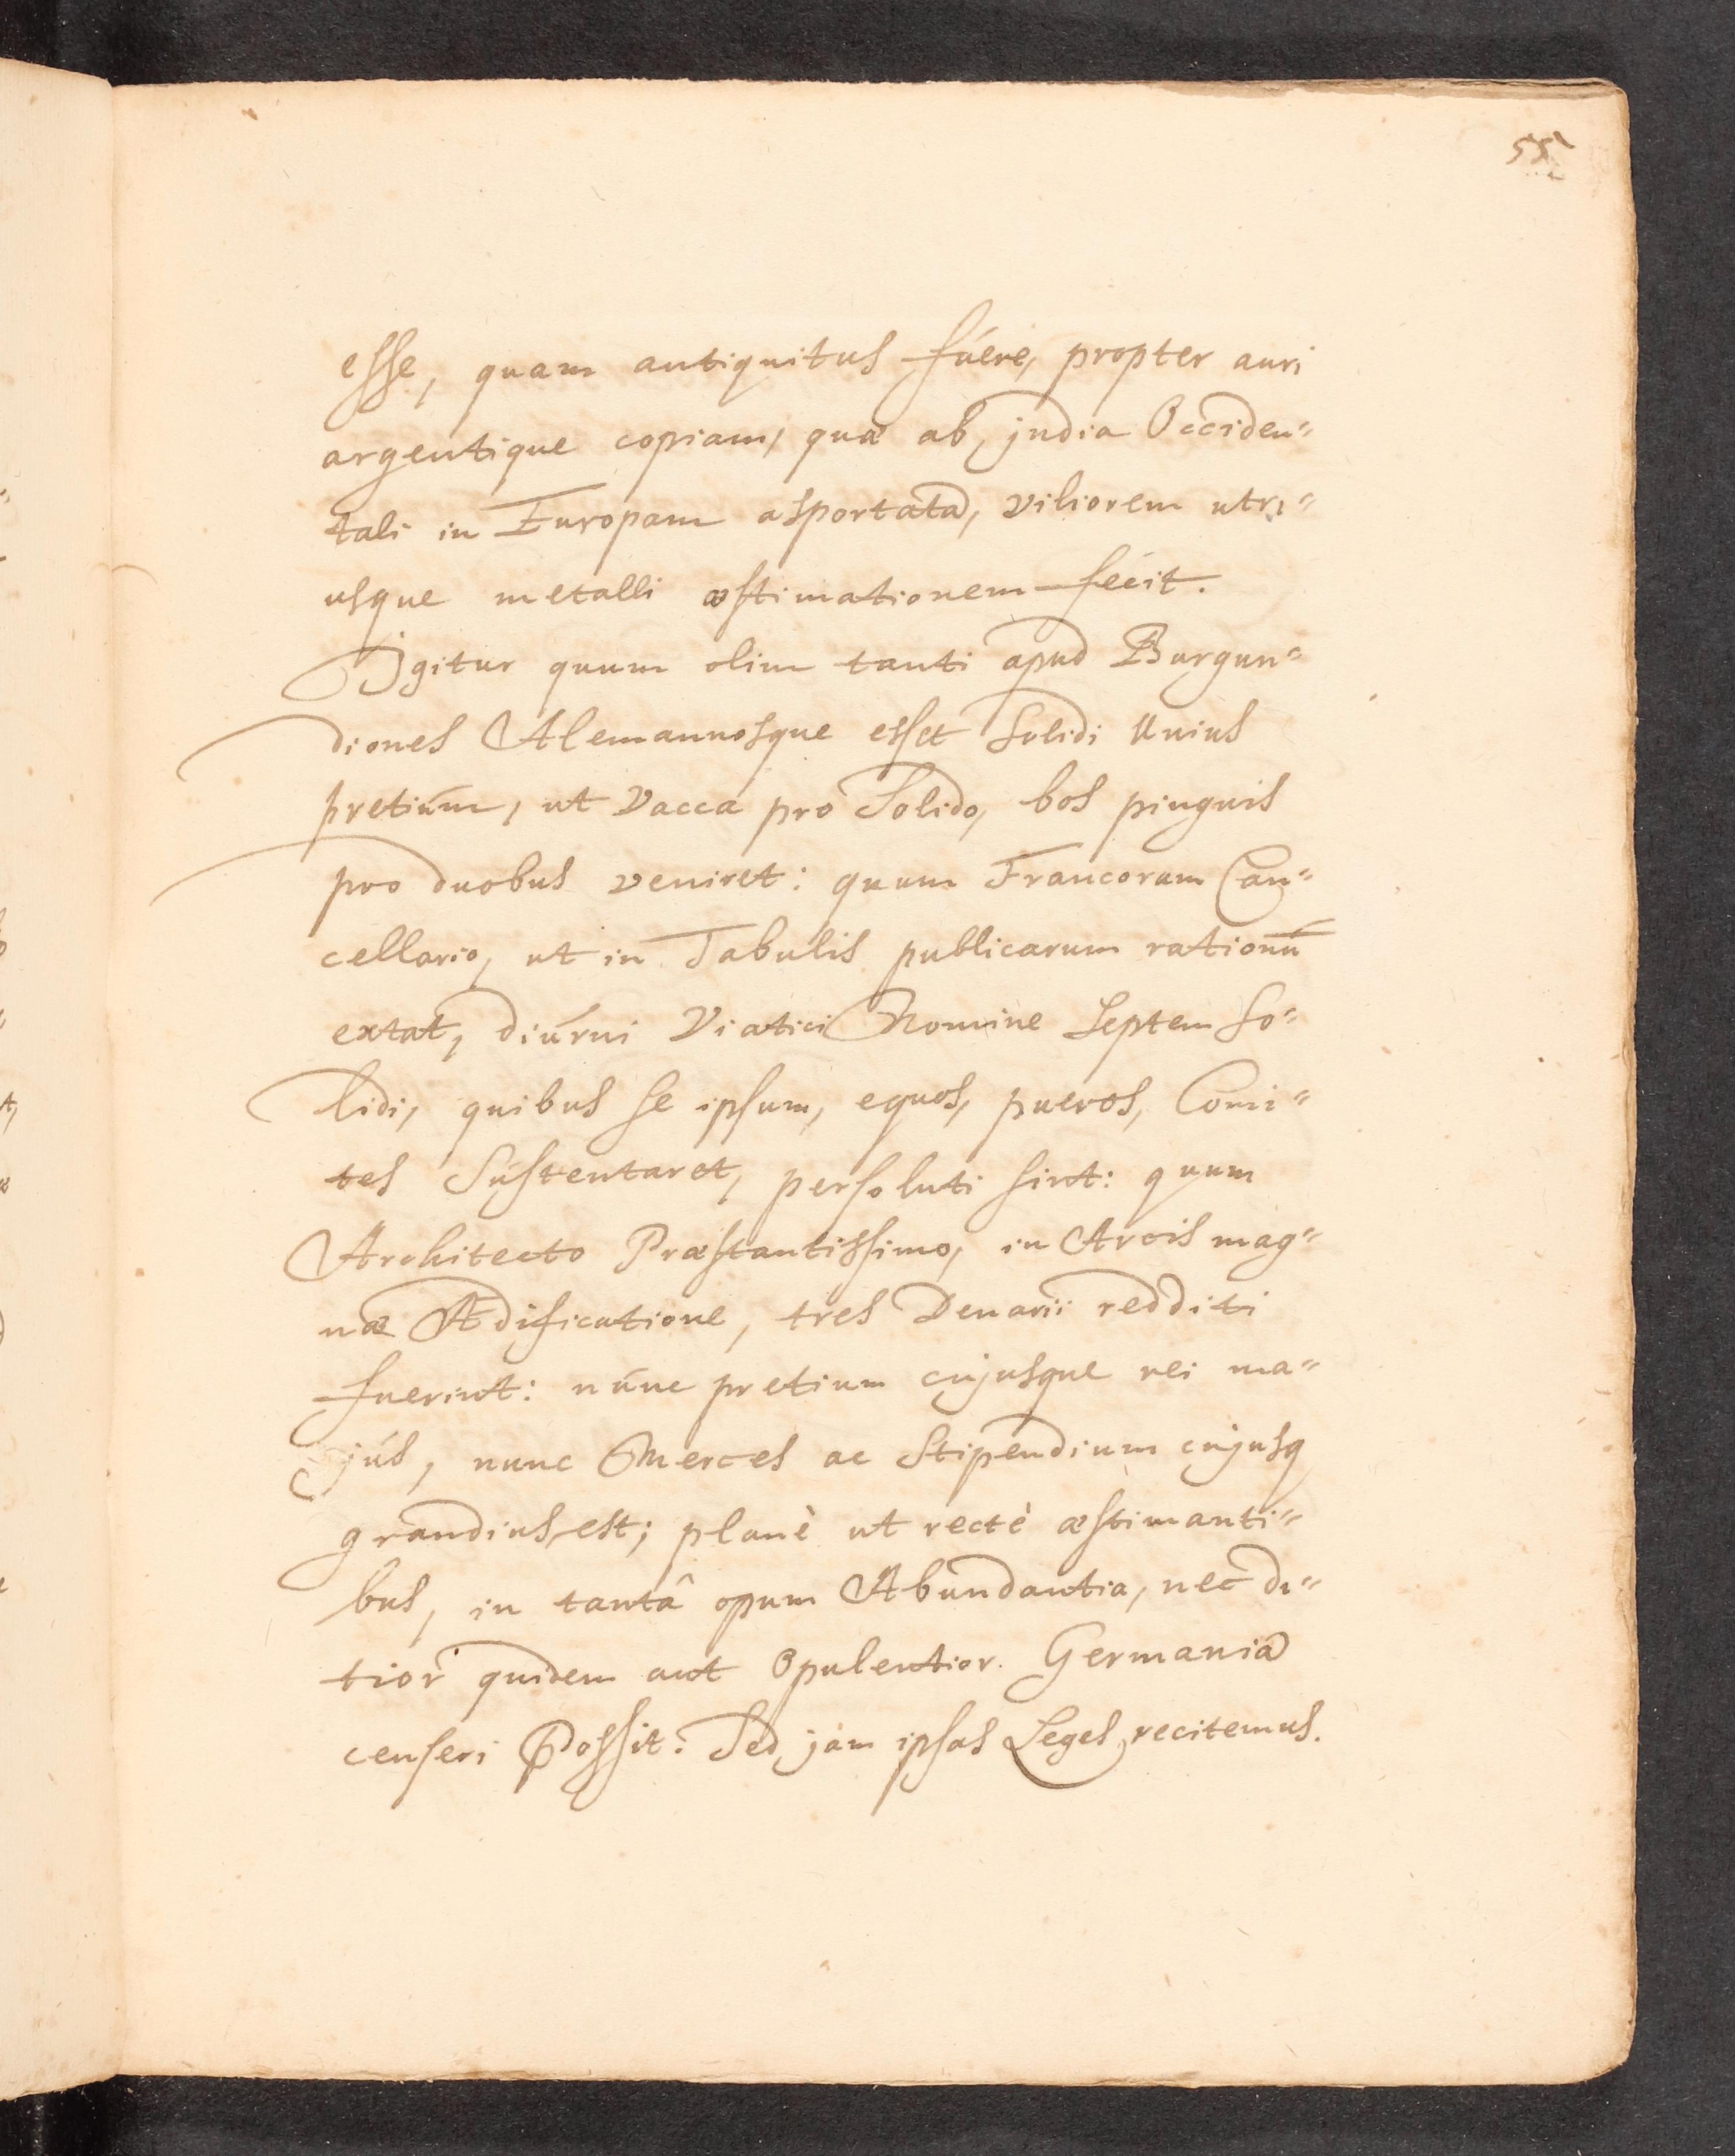 55
esse, quam antiquitus fuere, propter auri
argentique copiam, quæ ab jndia Occiden=
tali in Europam asportata, viliorem utri=
usque metalli æstimationem fecit.
Jgitur quum olim tanti apud Burgun=
diones Alemannosque esset solidi unius
pretium, ut Vacca pro Solido, bos pinguis
pro duobus veniret: quum Francorum Can=
cellario, ut in Tabulis publicarum rationū
extat, diurni Viatici Nomine septem so=
lidi, quibus se ipsum, equos, pueros, Comi=
tes sustentaret, persoluti sint: quum
Architecto Præstantissimo, in Arcis mag=
næ Ædificatione, tres Denarii redditi
fuerint: nunc pretium cujusque rei ma=
jus, nunc Merces ac Stipendium cujusq
grandius est; planè ut rectè æstimanti=
bus, in tantâ opum Abundantia, nec di=
tior quidem aut Opulentior Germania
censeri Possit. Sed jam ipsas Leges recitemus.